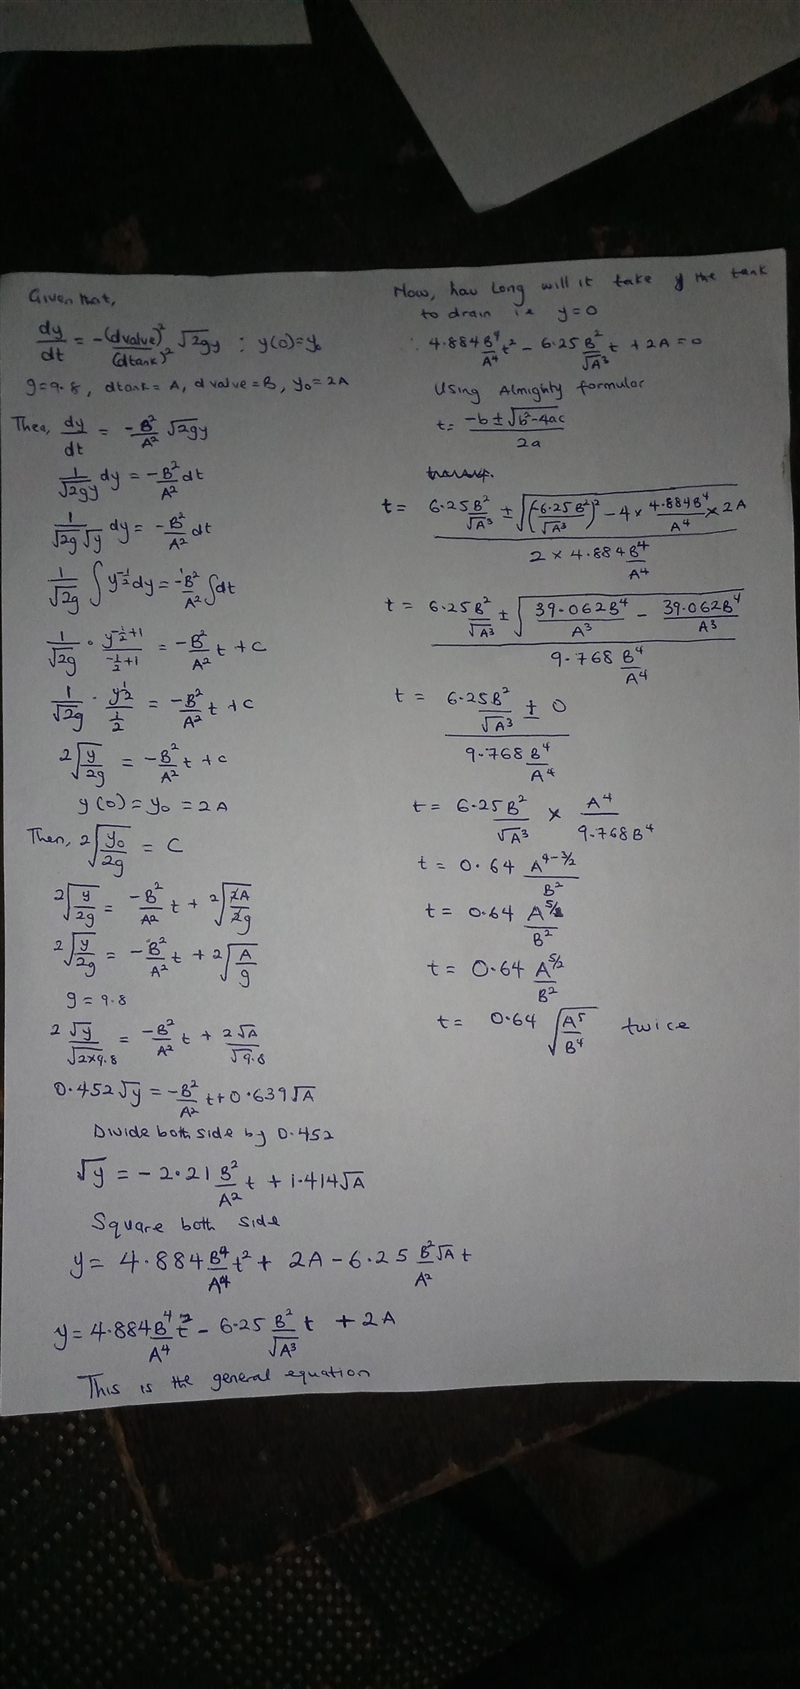 Given that,
dy/dt = -(dvalve)²/(dtank)² √2gy ; y(0)=y₀
g=9.8, dtank = A, dvalve = B, y₀ = 2A
Then, dy/dt = -B²/A² √2gy
1/√2gy dy = -B²/A² dt
1/√2g√y dy = -B²/A² dt
1/√2g ∫ y^-1/2 dy = -B²/A² ∫dt
1/√2g · y^(-1/2+1)/(-1/2+1) = -B²/A² t + C
1/√2g · y^1/2/(1/2) = -B²/A² t + C
2√(y/2g) = -B²/A² t + c
y(0) = y₀ = 2A
Then, 2√(y₀/2g) = C
2√(y/2g) = -B²/A² t + 2√(2A/2g)
2√(y/2g) = -B²/A² t + 2√(A/g)
g = 9.8
2√y/√2×9.8 = -B²/A² t + 2√A/√9.8
0.452√y = -B²/A² t + 0.639√A
Divide both side by 0.452
√y = -2.21 B²/A² t + 1.414√A
Square both side
y = 4.884 B⁴/A⁴ t² + 2A - 6.25 B²√A/A² t
y = 4.884 B⁴/A⁴ t² - 6.25 B²/√A³ t + 2A
This is the general equation
Now, how long will it take y the tank
to drain i.e y=0
∴ 4.884 B⁴/A⁴ t² - 6.25 B²/√A³ t + 2A = 0
Using Almighty formular
t = (-b ± √b²-4ac)/2a
t = (6.25B²/√A³ ± √((-6.25B²/√A³)² - 4 × 4.884B⁴/A⁴ × 2A))/(2 × 4.884B⁴/A⁴)
t = (6.25B²/√A³ ± √(39.062B⁴/A³ - 39.062B⁴/A³))/(9.768 B⁴/A⁴)
t = (6.25B²/√A³ ± 0)/(9.768 B⁴/A⁴)
t = 6.25B²/√A³ × A⁴/9.768B⁴
t = 0.64 A^(4-3/2)/B²
t = 0.64 A^5/2/B²
t = 0.64 A^5/2/B²
t = 0.64 √(A⁵/B⁴) twice